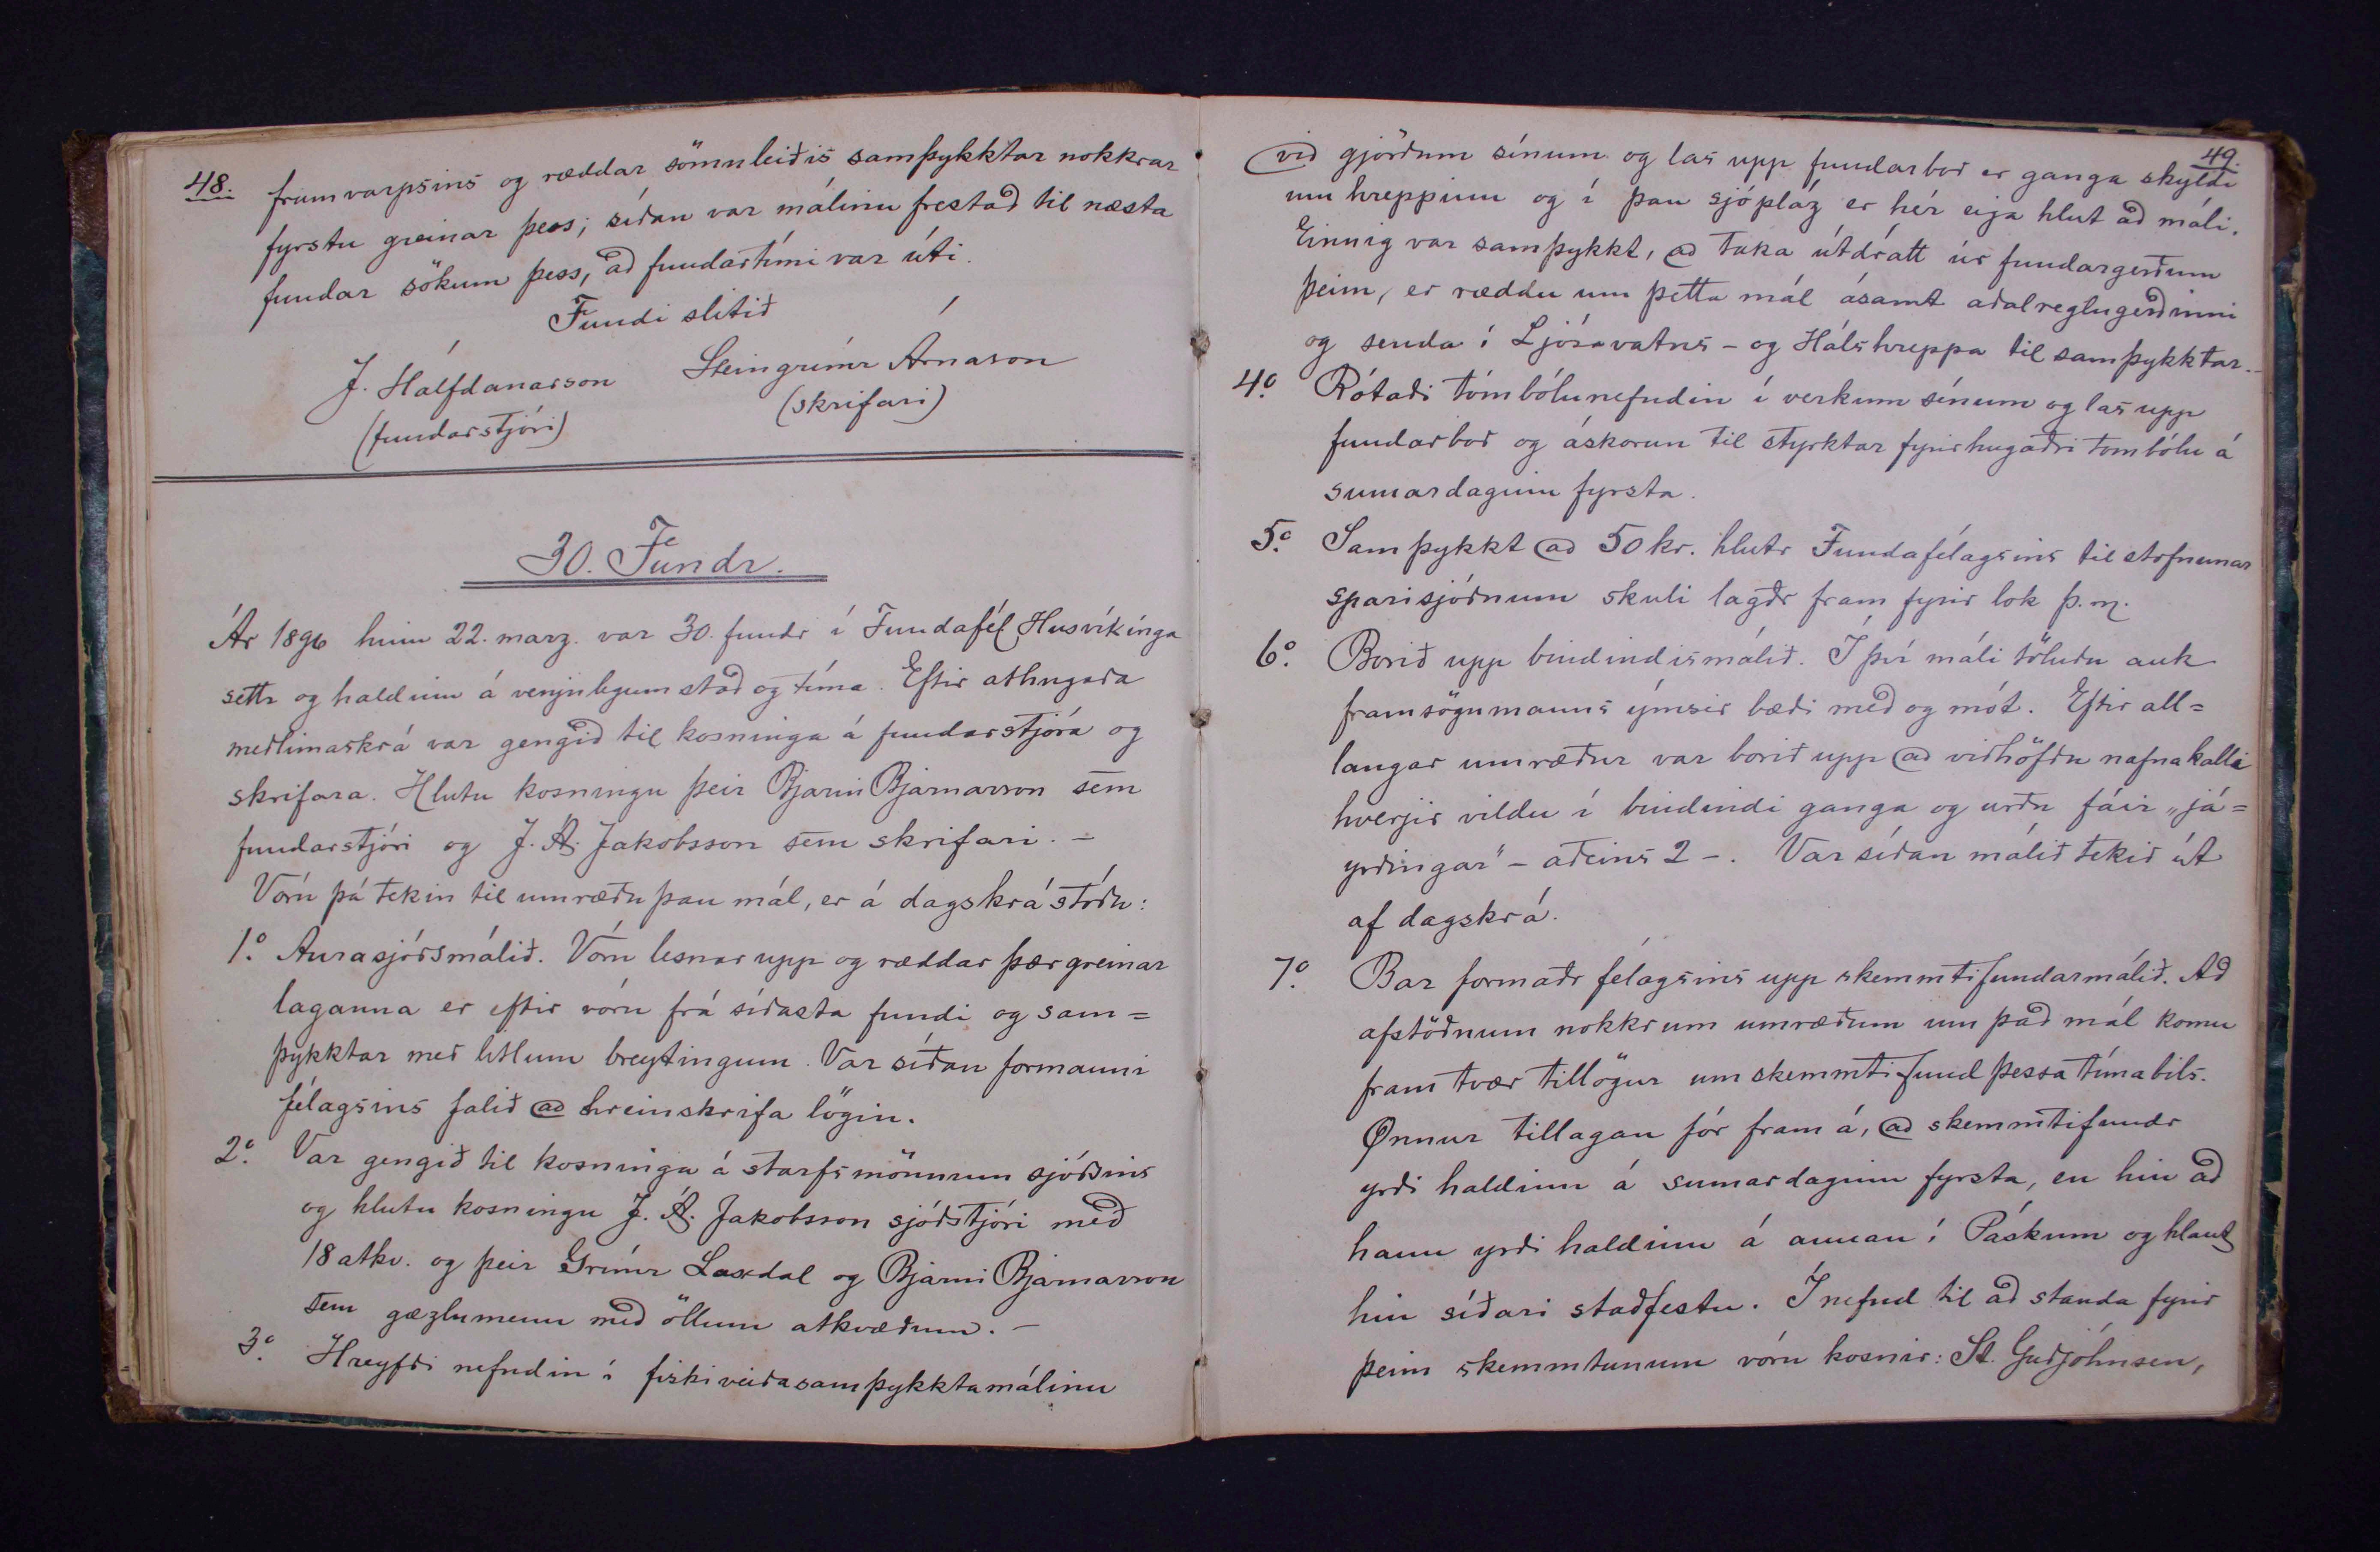 48.
frumvarpsins og ræddar sömuleiðis samþykktar nokkrar
fyrstu greinar þess; síðan var málinu frestað til næsta
fundar sökum þess, að fundartími var úti.
Fundi slitið
J. Hálfdanarson Steingrímr Árnason
(fundarstjóri) (skrifari)
30. Fundr.
Ár 1896 hinn 22. marz. var 30. fundr í Fundafél Husvíkinga
settr og haldinn á venjulegum stað og tíma. Eftir athugaða
meðlimaskrá var gengið til kosninga á fundarstjóra og
skrifara. Hlutu kosningu þeir Bjarni Bjarnarson sem
fundarstjóri og J. Á. Jakobsson sem skrifari. –
Vóru þá tekin til umræðu þau mál, er á dagskrá stóðu:
1.° Aurasjóðsmálið. Vóru lesnar upp og ræddar þær greinar
laganna er eftir vóru frá síðasta fundi og sam=
þykktar með litlum breytingum. Var síðan formanni
félagsins falið að hreinskrifa lögin.
2.° Var gengið til kosninga á starfsmönnum sjóðsins
og hlutu kosningu J. Á. Jakobsson sjóðstjóri með
18 atkv. og þeir Grímr Laxdal og Bjarni Bjarnarson
sem gæzlumenn með öllum atkvæðum. –
3.° Hreyfði nefndin í fiskiveiðasamþykktamálinu
49.
við gjörðum sínum og las upp fundarboð er ganga skyldi
um hreppinn og í þau sjópláz er hér eiga hlut að máli.
Einnig var samþykkt, að taka útdrátt úr fundargerðum
þeim, er ræddu um þetta mál ásamt aðalreglugerðinni
og senda í Ljósavatns- og Hálshreppa til samþykktar. –
4.° Rótaði tómbólunefndin í verkum sínum og las upp
fundarboð og áskorun til styrktar fyrirhugaðri tombólu á
sumardaginn fyrsta.
5.° Samþykkt að 50 kr. hlutr Fundafélagsins til stofnunar
sparisjóðnum skuli lagðr fram fyrir lok þ. m.
6.° Borið upp bindindismálið. Í því máli töluðu auk
framsögumanns ýmsir bæði með og mót. Eftir all=
langar umræður var borið upp að viðhöfðu nafnakalli
hverjir vildu í bindindi ganga og urðu fáir „já=
yrðingar" – aðeins 2 –. Var síðan málið tekið út
af dagskrá.
7.° Bar formaðr félagsins upp skemmtifundarmálið. Að
afstöðnum nokkrum umræðum um það mál komu
fram tvær tillögur um skemmtifund þessa tímabils.
Önnur tillagan fór fram á, að skemmtifundr
yrði haldinn á sumardaginn fyrsta, en hin að
hann yrði haldinn á annan í Páskum og hlaut
hin síðari staðfestu. Í nefnd til að standa fyrir
þeim skemmtunum vóru kosnir: St. Guðjohnsen,